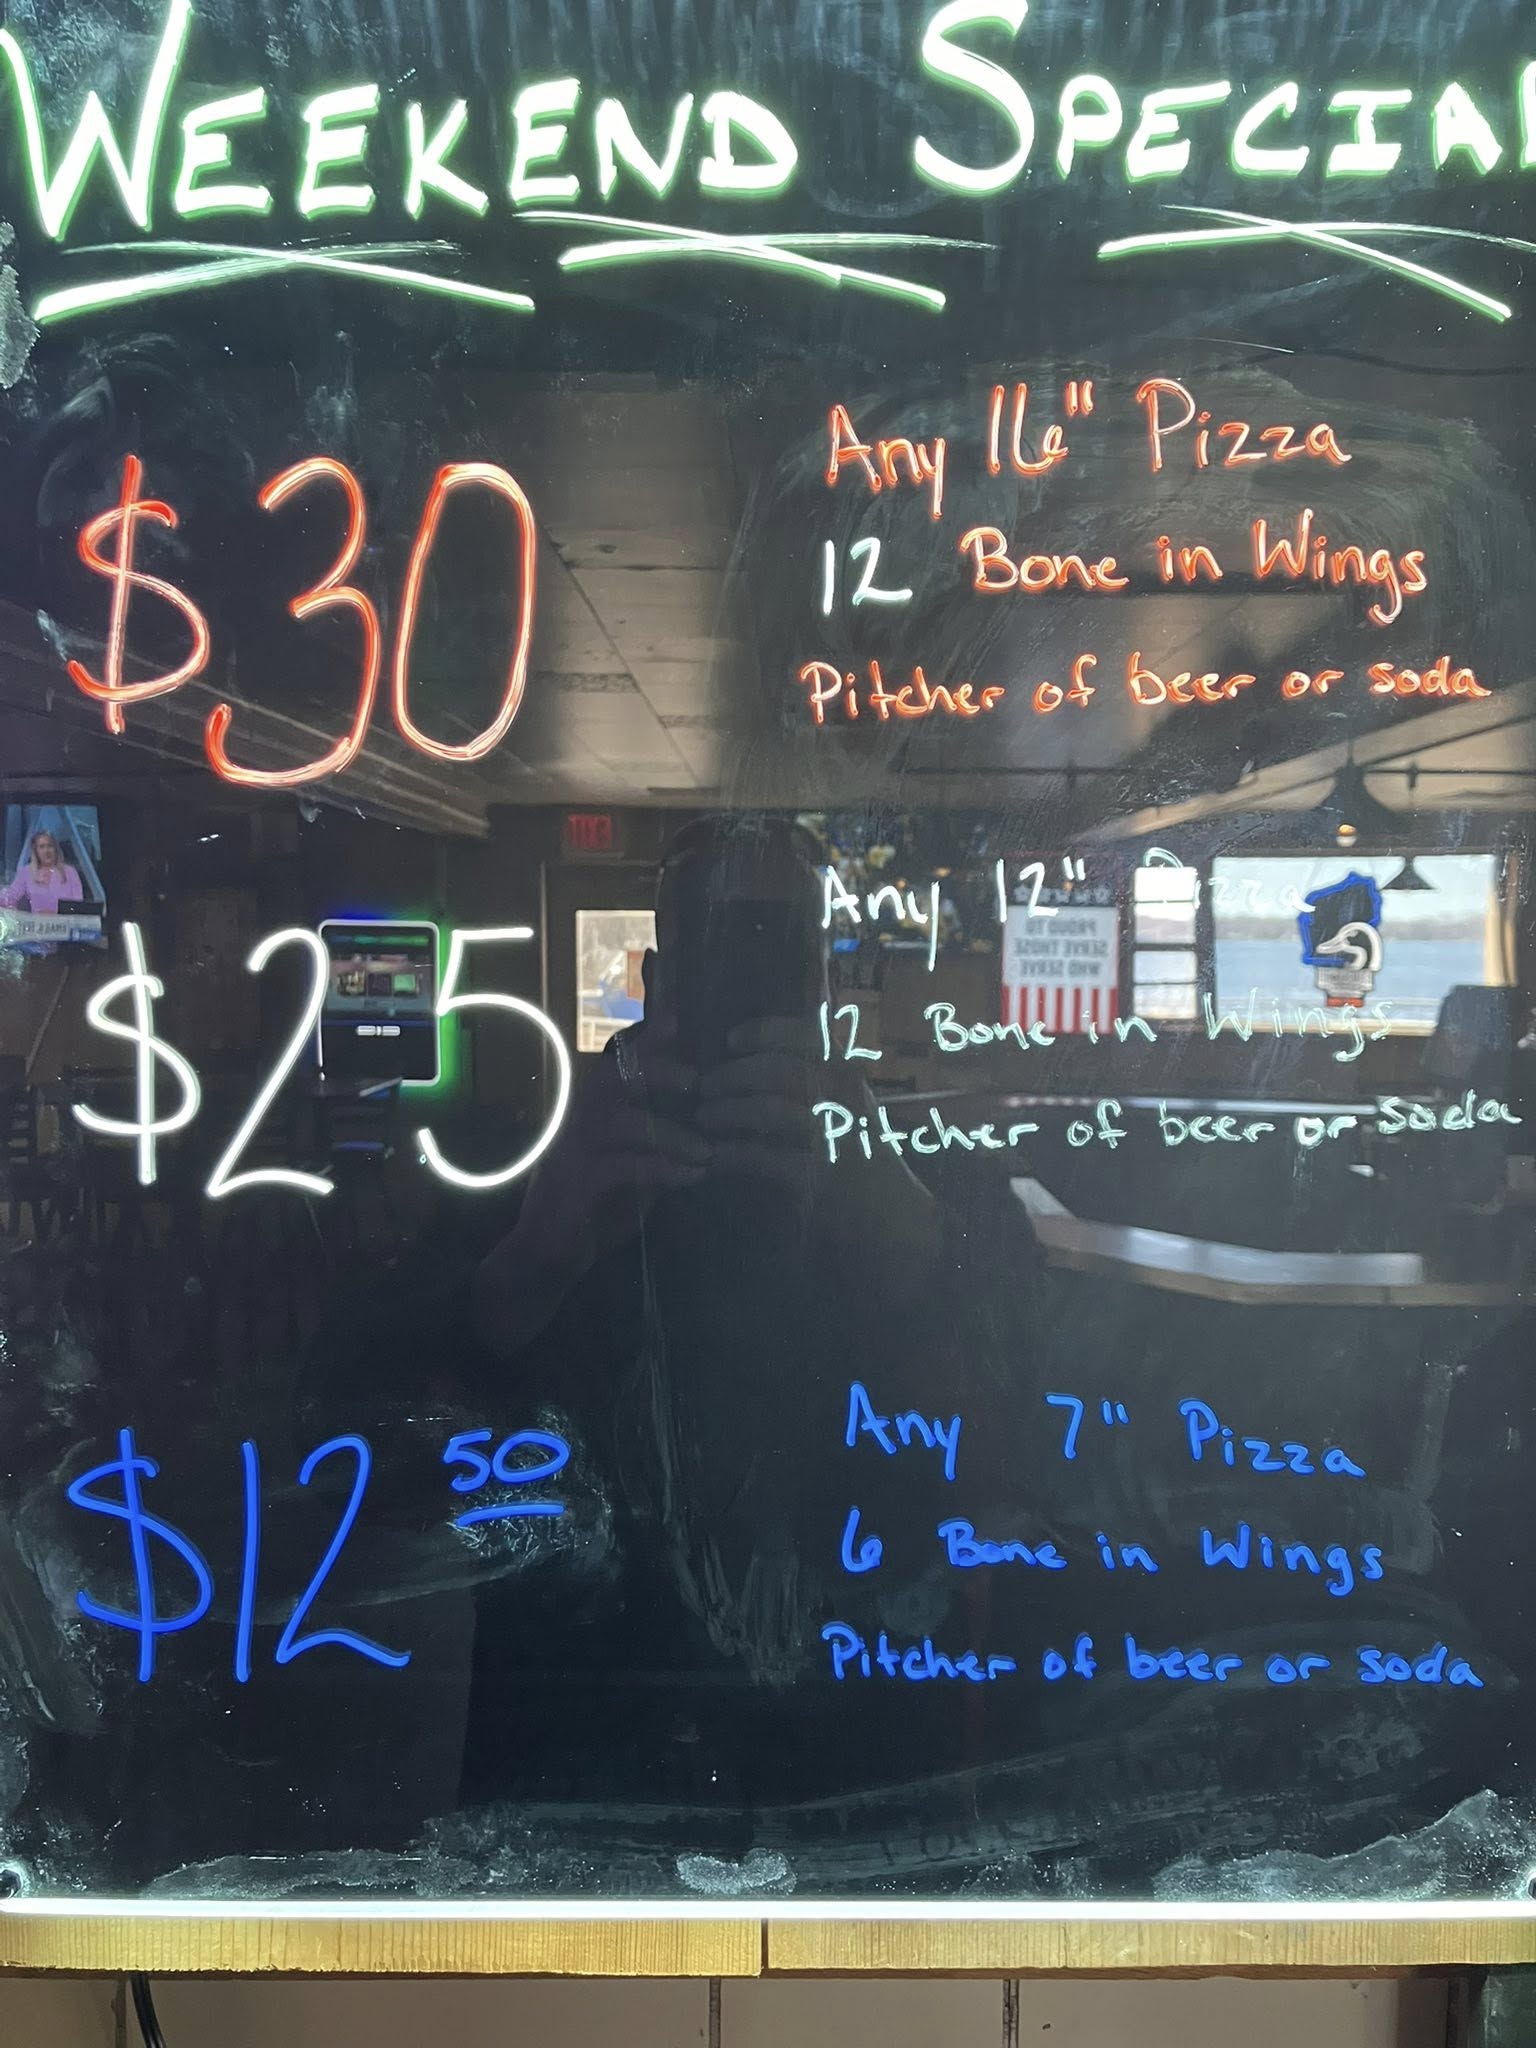 WEEKEND SPECIAL
$30
Any 16" Pizza
12 Bone in Wings
Pitcher of beer or soda
$25
Any 12" Pizza
12 Bone in Wings
Pitcher of beer or soda
$12 50
Any 7" Pizza
6 Bone in Wings
Pitcher of beer or soda
PROUD TO
SERVE THOSE
WHO SERVE